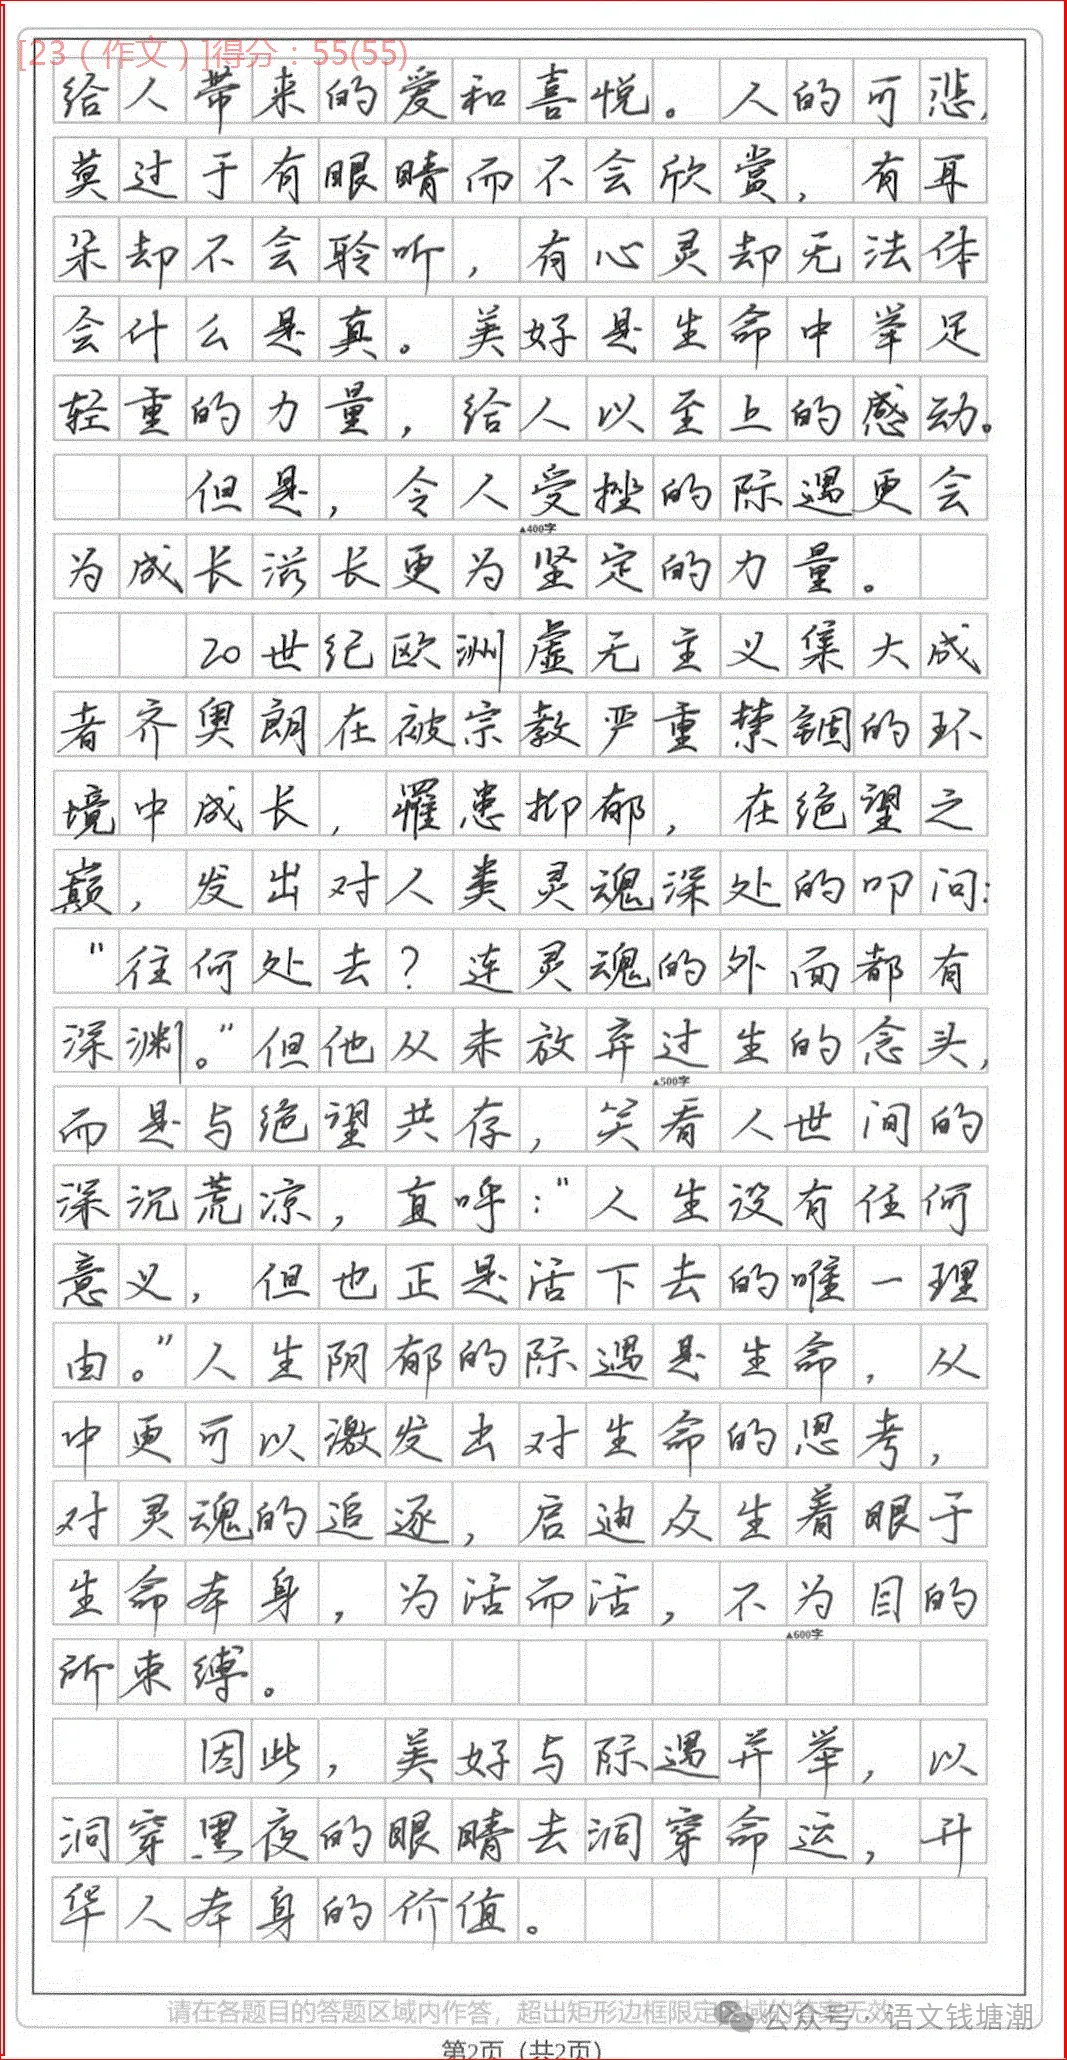 [23（作文）]得分：55(55)
给人带来的爱和喜悦。人的可悲，
莫过于有眼睛而不会欣赏，有耳
朵却不会聆听，有心灵却无法体
会什么是真。美好是生命中举足
轻重的力量，给人以至上的感动。
但是，令人受挫的际遇更会
▲400字
为成长滋长更为坚定的力量。
20世纪欧洲虚无主义集大成
者齐奥朗在被宗教严重禁锢的环
境中成长，罹患抑郁，在绝望之
巅，发出对人类灵魂深处的叩问：
“往何处去？连灵魂的外面都有
深渊。”但他从未放弃过生的念头，
▲500字
而是与绝望共存，笑看人世间的
深沉荒凉，直呼：“人生没有任何
意义，但也正是活下去的唯一理
由。”人生阴郁的际遇是生命，从
中更可以激发出对生命的思考，
对灵魂的追逐，启迪众生着眼于
生命本身，为活而活，不为目的
▲600字
所束缚。
因此，美好与际遇并举，以
洞穿黑夜的眼睛去洞穿命运，升
华人本身的价值。
请在各题目的答题区域内作答，超出矩形边框限定区域的答案无效
公众号·语文钱塘潮
第2页（共2页）